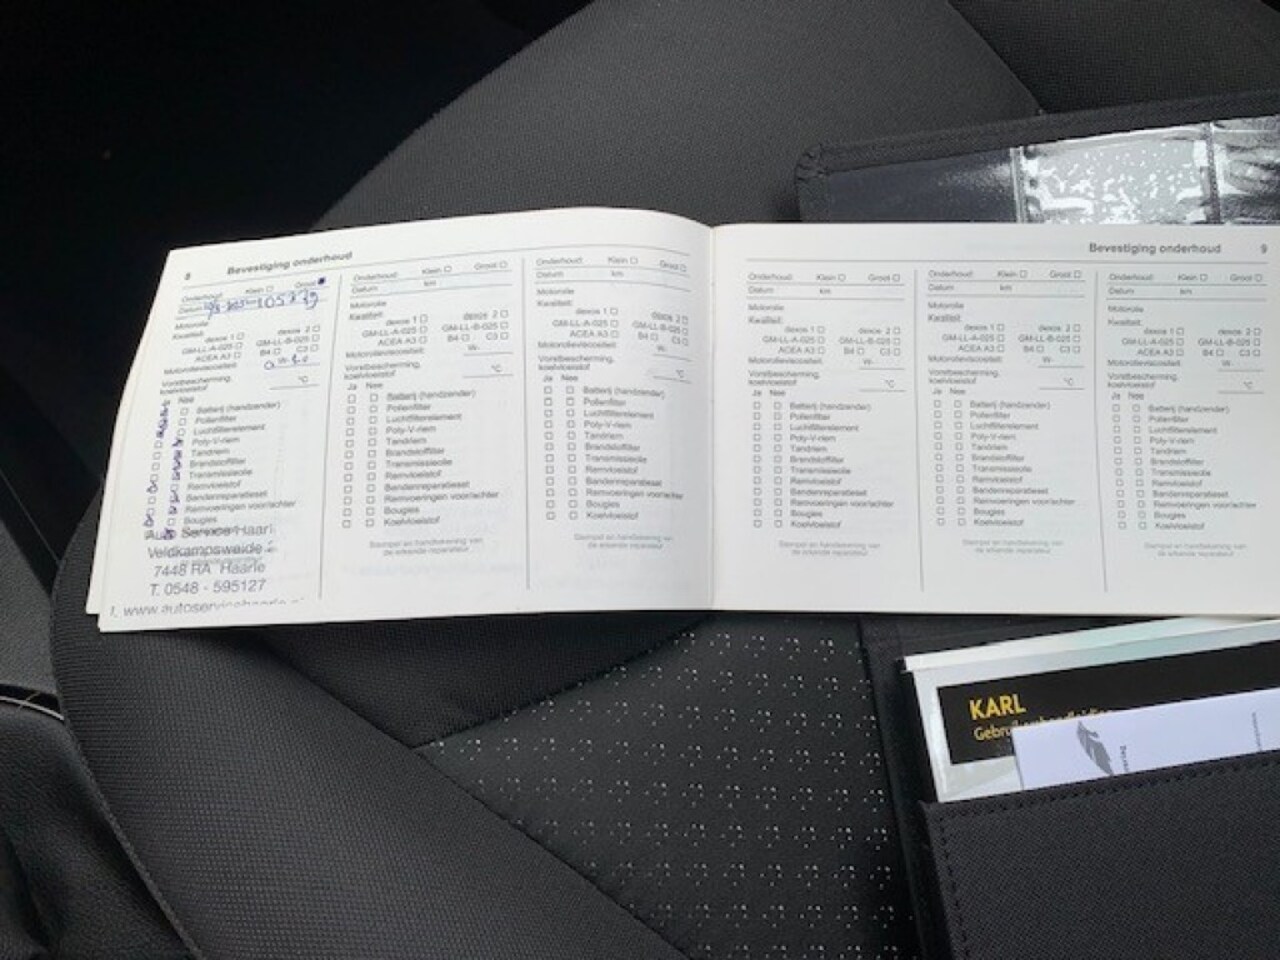 8 Bevestiging onderhoud
Onderhoud: Klein □ Groot
Datum
Motorolie
Kwaliteit:
dexos 1 □ dexos 2 □
GM-LL-A-025 □ GM-LL-B-025 □
ACEA A3 □ B4 □ C3 □
Motorolieviscositeit: W-
Vorstbescherming,
koelvloeistof °C
Ja Nee
Batterij (handzender)
Pollenfilter
Luchtfilterelement
Poly-V-riem
Tandriem
Brandstoffilter
Transmissieolie
Remvloeistof
Bandenreparatieset
Remvoeringen voor/achter
Bougies
Auto Service Haarle
Veldkampsweide
7448 RA Haarle
T. 0548 - 595127
I. www.autoservicehaarle.nl
Onderhoud: Klein □ Groot □
Datum km
Motorolie
Kwaliteit:
dexos 1 □ dexos 2 □
GM-LL-A-025 □ GM-LL-B-025 □
ACEA A3 □ B4 □ C3 □
Motorolieviscositeit: W-
Vorstbescherming,
koelvloeistof °C
Ja Nee
□ □ Batterij (handzender)
□ □ Pollenfilter
□ □ Luchtfilterelement
□ □ Poly-V-riem
□ □ Tandriem
□ □ Brandstoffilter
□ □ Transmissieolie
□ □ Remvloeistof
□ □ Bandenreparatieset
□ □ Remvoeringen voor/achter
□ □ Bougies
□ □ Koelvloeistof
Stempel en handtekening van
de erkende reparateur
Onderhoud: Klein □ Groot □
Datum km
Motorolie
Kwaliteit:
dexos 1 □ dexos 2 □
GM-LL-A-025 □ GM-LL-B-025 □
ACEA A3 □ B4 □ C3 □
Motorolieviscositeit: W-
Vorstbescherming,
koelvloeistof °C
Ja Nee
□ □ Batterij (handzender)
□ □ Pollenfilter
□ □ Luchtfilterelement
□ □ Poly-V-riem
□ □ Tandriem
□ □ Brandstoffilter
□ □ Transmissieolie
□ □ Remvloeistof
□ □ Bandenreparatieset
□ □ Remvoeringen voor/achter
□ □ Bougies
□ □ Koelvloeistof
Stempel en handtekening van
de erkende reparateur
Bevestiging onderhoud 9
Onderhoud: Klein □ Groot □
Datum km
Motorolie
Kwaliteit:
dexos 1 □ dexos 2 □
GM-LL-A-025 □ GM-LL-B-025 □
ACEA A3 □ B4 □ C3 □
Motorolieviscositeit: W-
Vorstbescherming,
koelvloeistof °C
Ja Nee
□ □ Batterij (handzender)
□ □ Pollenfilter
□ □ Luchtfilterelement
□ □ Poly-V-riem
□ □ Tandriem
□ □ Brandstoffilter
□ □ Transmissieolie
□ □ Remvloeistof
□ □ Bandenreparatieset
□ □ Remvoeringen voor/achter
□ □ Bougies
□ □ Koelvloeistof
Stempel en handtekening van
de erkende reparateur
Onderhoud: Klein □ Groot □
Datum km
Motorolie
Kwaliteit:
dexos 1 □ dexos 2 □
GM-LL-A-025 □ GM-LL-B-025 □
ACEA A3 □ B4 □ C3 □
Motorolieviscositeit: W-
Vorstbescherming,
koelvloeistof °C
Ja Nee
□ □ Batterij (handzender)
□ □ Pollenfilter
□ □ Luchtfilterelement
□ □ Poly-V-riem
□ □ Tandriem
□ □ Brandstoffilter
□ □ Transmissieolie
□ □ Remvloeistof
□ □ Bandenreparatieset
□ □ Remvoeringen voor/achter
□ □ Bougies
□ □ Koelvloeistof
Stempel en handtekening van
de erkende reparateur
Onderhoud: Klein □ Groot □
Datum km
Motorolie
Kwaliteit:
dexos 1 □ dexos 2 □
GM-LL-A-025 □ GM-LL-B-025 □
ACEA A3 □ B4 □ C3 □
Motorolieviscositeit: W-
Vorstbescherming,
koelvloeistof °C
Ja Nee
□ □ Batterij (handzender)
□ □ Pollenfilter
□ □ Luchtfilterelement
□ □ Poly-V-riem
□ □ Tandriem
□ □ Brandstoffilter
□ □ Transmissieolie
□ □ Remvloeistof
□ □ Bandenreparatieset
□ □ Remvoeringen voor/achter
□ □ Bougies
□ □ Koelvloeistof
Stempel en handtekening van
de erkende reparateur
KARL